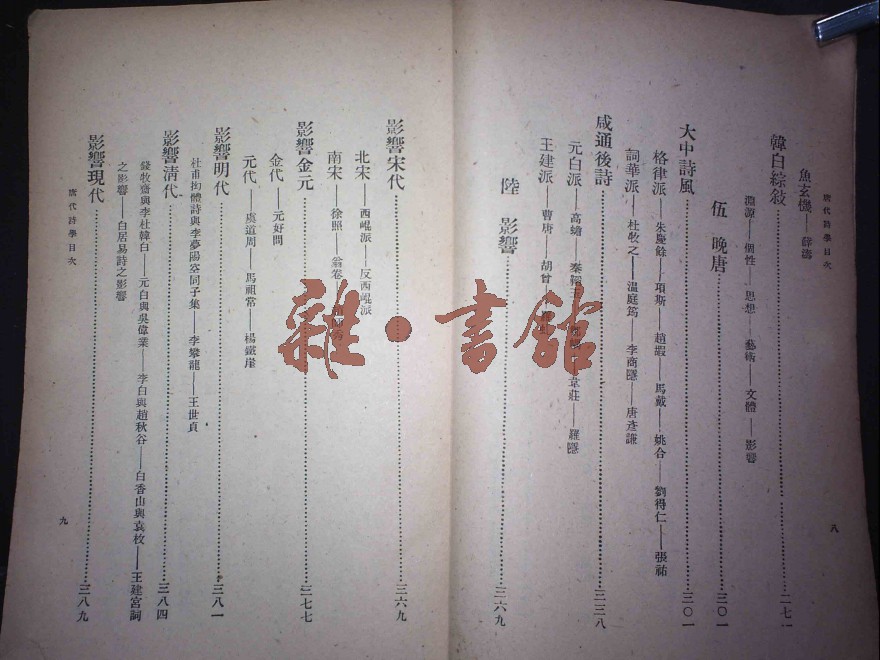 唐代詩學目次
八
魚玄機——薛濤
韓白綜敍………二七一
淵源——個性——思想——藝術——文體——影響
伍 晚唐………三〇一
大中詩風………三〇一
格律派——朱慶餘——項斯——趙嘏——馬戴——姚合——劉得仁——張祜
詞華派——杜牧之——溫庭筠——李商隱——唐彥謙
咸通後詩………三三八
元白派——高蟾——秦韜——韋莊——羅隱
王建派——曹唐——胡曾
陸 影響………三六九
影響宋代………三六九
北宋——西崐派——反西崐派
南宋——徐照——翁卷
影響金元………三七七
金代——元好問
元代——虞道周——馬祖常——楊鐵崖
影響明代………三八一
杜甫拗體詩與李夢陽空同子集——李攀龍——王世貞
影響清代………三八四
錢牧齋與李杜韓白——元白與吳偉業——李白與趙秋谷——白香山與袁枚——王建宮詞
之影響——白居易詩之影響
影響現代………三八九
唐代詩學目次
九
雜·書館